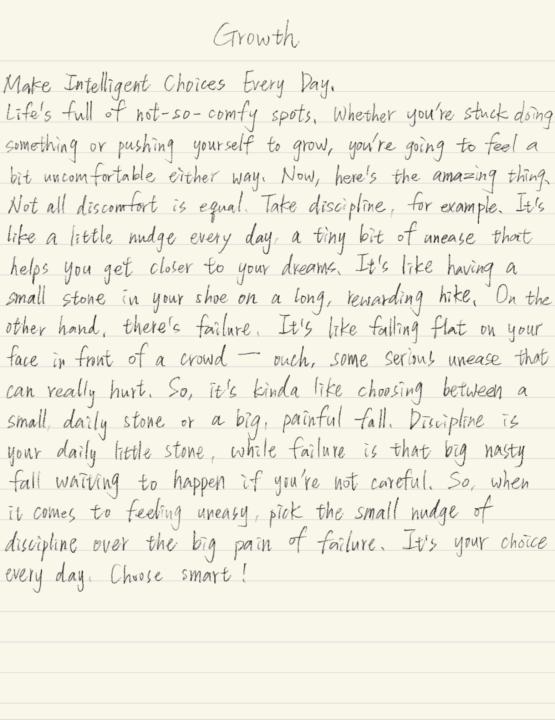 Growth
Make Intelligent Choices Every Day.
Life's full of not-so-comfy spots. Whether you're stuck doing
something or pushing yourself to grow, you're going to feel a
bit uncomfortable either way. Now, here's the amazing thing.
Not all discomfort is equal. Take discipline, for example. It's
like a little nudge every day, a tiny bit of unease that
helps you get closer to your dreams. It's like having a
small stone in your shoe on a long, rewarding hike. On the
other hand, there's failure. It's like falling flat on your
face in front of a crowd — ouch, some serious unease that
can really hurt. So, it's kinda like choosing between a
small, daily stone or a big, painful fall. Discipline is
your daily little stone, while failure is that big nasty
fall waiting to happen if you're not careful. So, when
it comes to feeling uneasy, pick the small nudge of
discipline over the big pain of failure. It's your choice
every day. Choose smart!